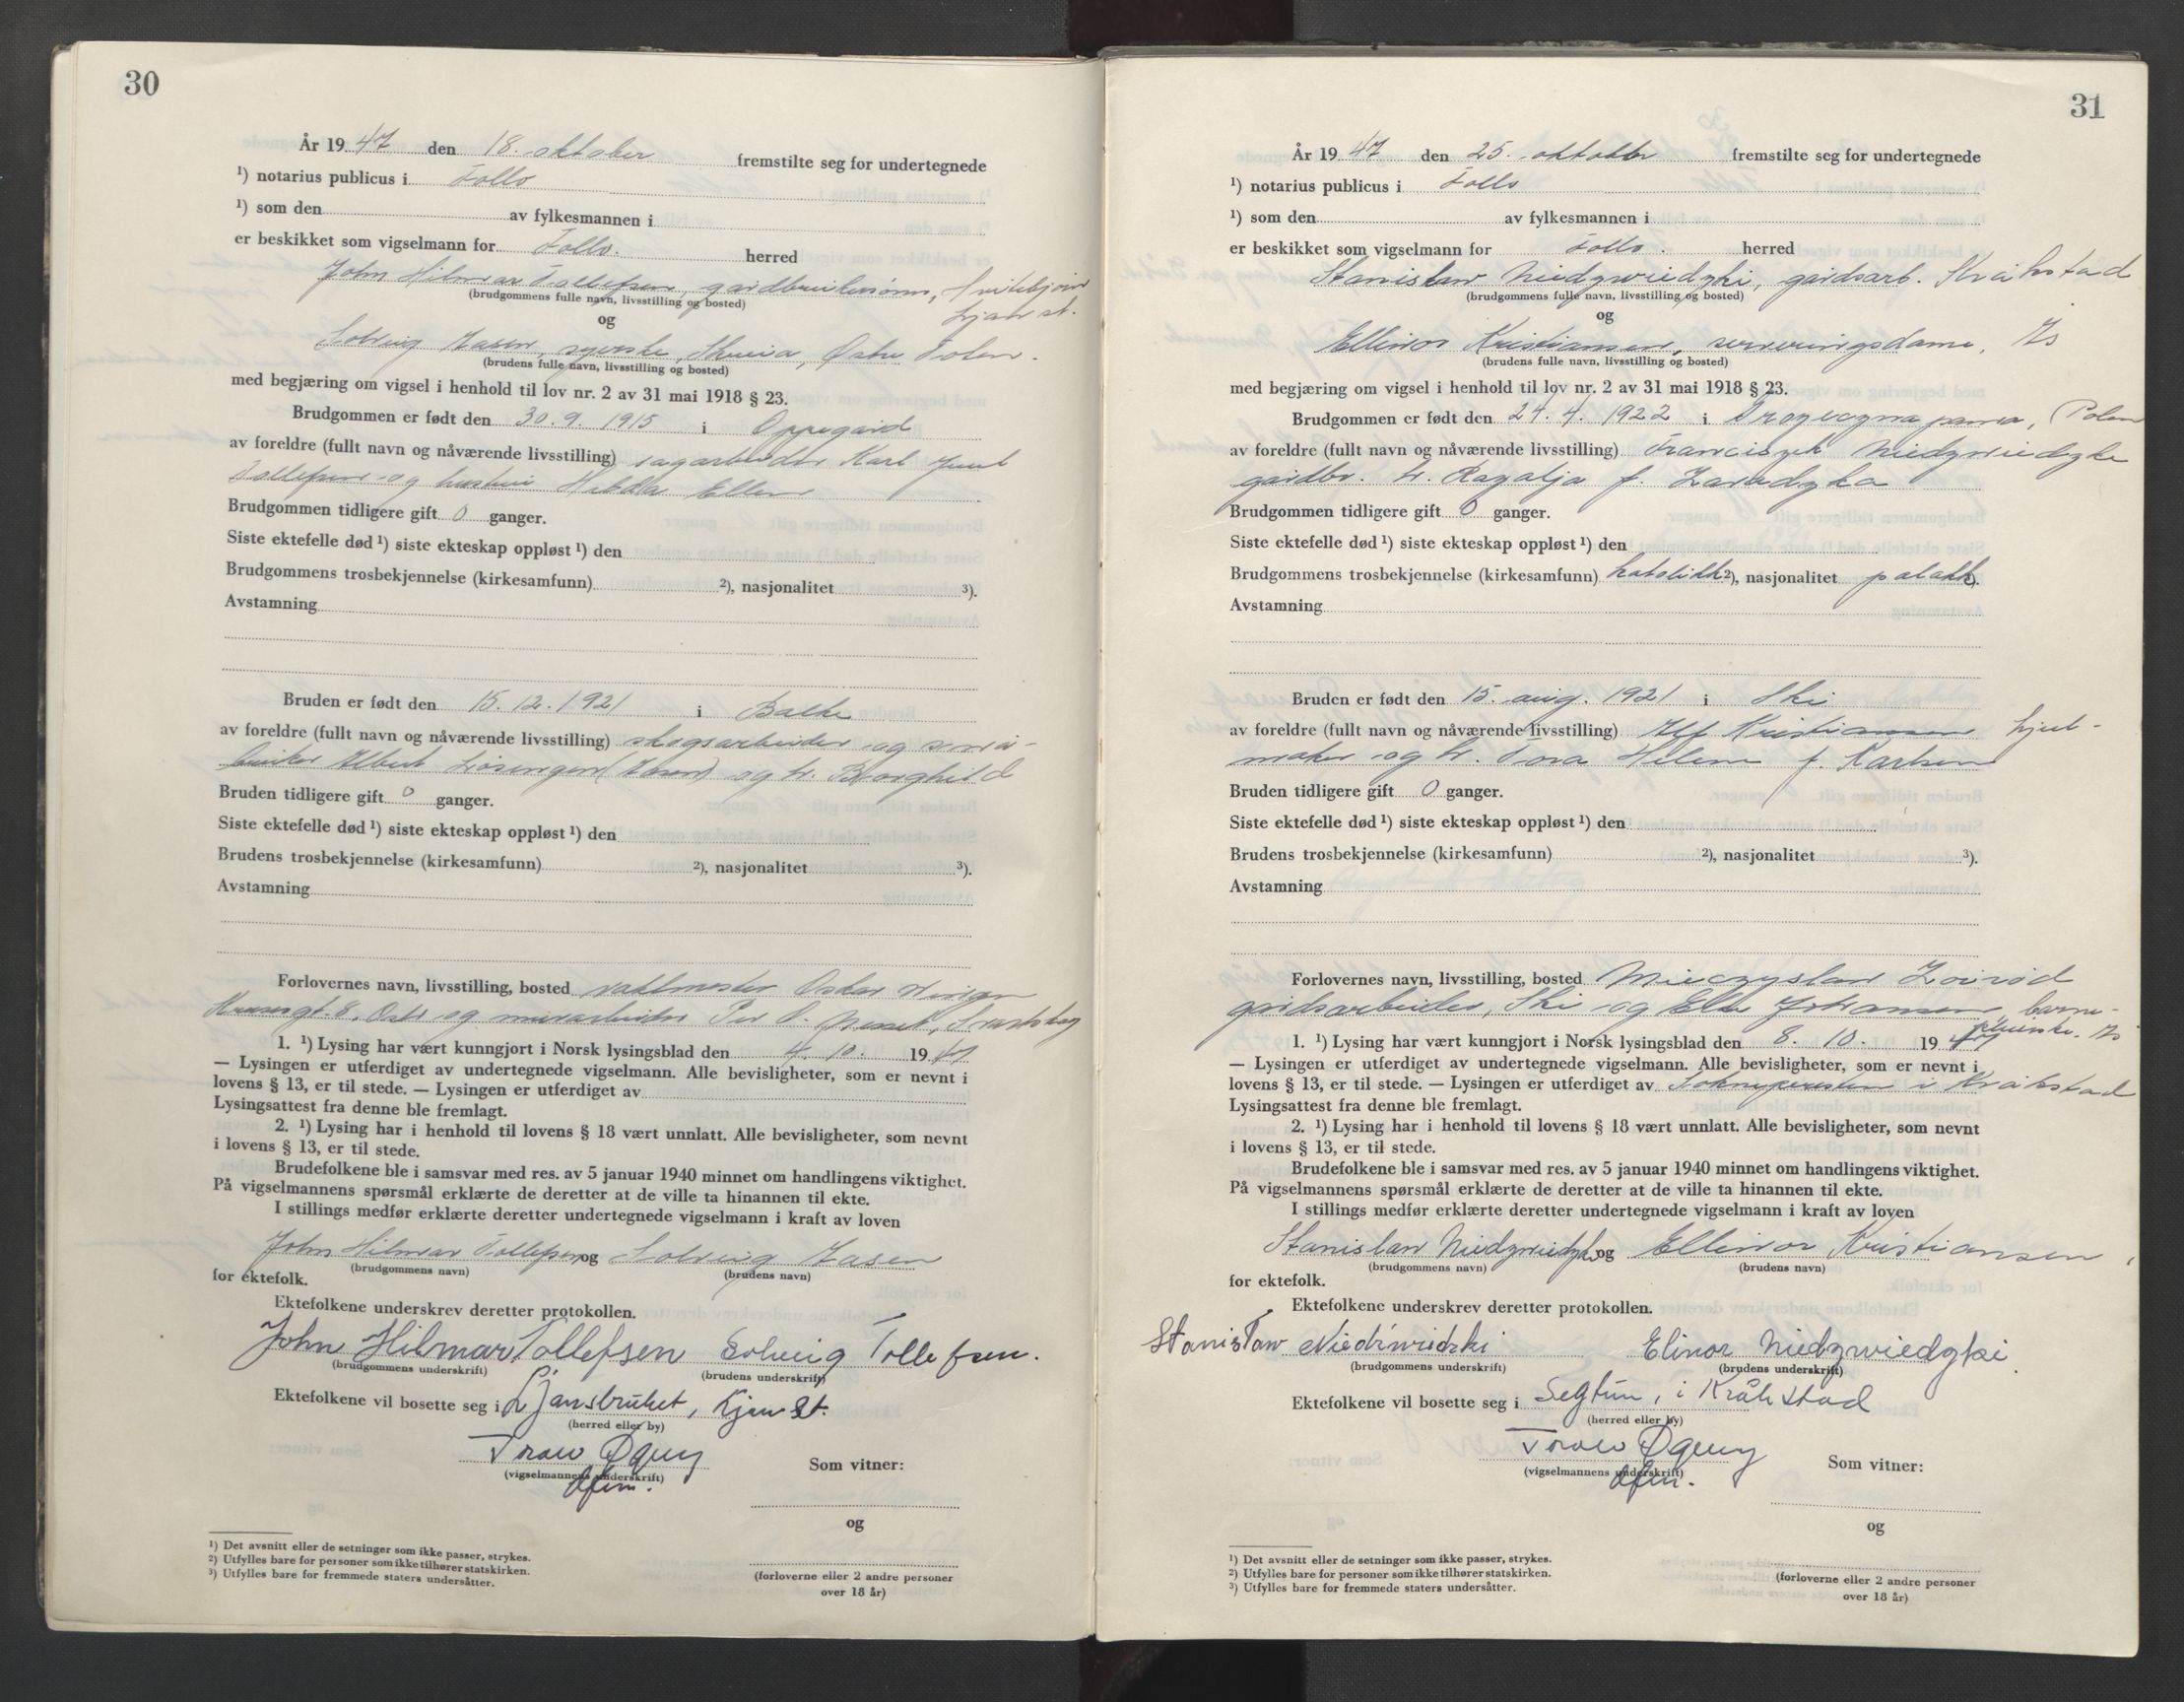 30
År 19 47 den 18. oktober fremstilte seg for undertegnede
¹) notarius publicus i Follo
¹) som den av fylkesmannen i
er beskikket som vigselmann for Follo. herred
John Hilmar Tollefsen, gardbrukersønn,
(brudgommens fulle navn, livsstilling og bosted)
og
Solveig Hasen, syerske, Østre Toten.
(brudens fulle navn, livsstilling og bosted)
med begjæring om vigsel i henhold til lov nr. 2 av 31 mai 1918 § 23.
Brudgommen er født den 30. 9. 1915 i Oppegård
av foreldre (fullt navn og nåværende livsstilling) sagarbeider Karl Juul
Tollefsen og hustru Ellen
Brudgommen tidligere gift 0 ganger.
Siste ektefelle død ¹) siste ekteskap oppløst ¹) den
Brudgommens trosbekjennelse (kirkesamfunn) ²), nasjonalitet ³).
Avstamning
Bruden er født den 15. 12. 1921 i Balke
av foreldre (fullt navn og nåværende livsstilling) skogsarbeider og små-
bruker Albert og h. Borghild
Bruden tidligere gift 0 ganger.
Siste ektefelle død ¹) siste ekteskap oppløst ¹) den
Brudens trosbekjennelse (kirkesamfunn) ²), nasjonalitet ³).
Avstamning
Forlovernes navn, livsstilling, bosted vaktmester Oskar
8, Oslo og murarbeider Per O. Svartskog
1. ¹) Lysing har vært kunngjort i Norsk lysingsblad den 4. 10. 19 47
— Lysingen er utferdiget av undertegnede vigselmann. Alle bevisligheter, som er nevnt i
lovens § 13, er til stede. — Lysingen er utferdiget av
Lysingsattest fra denne ble fremlagt.
2. ¹) Lysing har i henhold til lovens § 18 vært unnlatt. Alle bevisligheter, som nevnt
i lovens § 13, er til stede.
Brudefolkene ble i samsvar med res. av 5 januar 1940 minnet om handlingens viktighet.
På vigselmannens spørsmål erklærte de deretter at de ville ta hinannen til ekte.
I stillings medfør erklærte deretter undertegnede vigselmann i kraft av loven
John Hilmar Tollefsen og Solveig Hasen
(brudgommens navn) (brudens navn)
for ektefolk.
Ektefolkene underskrev deretter protokollen.
John Hilmar Tollefsen Solveig Tollefsen.
(brudgommens underskrift) (brudens underskrift)
Ektefolkene vil bosette seg i Ljansbruket, Ljan st.
(herred eller by)
(vigselmannens underskrift)
Som vitner:
og
(forloverne eller 2 andre personer
over 18 år)
¹) Det avsnitt eller de setninger som ikke passer, strykes.
²) Utfylles bare for personer som ikke tilhører statskirken.
³) Utfylles bare for fremmede staters undersåtter.
31
År 19 47 den 25. oktober fremstilte seg for undertegnede
¹) notarius publicus i Follo
¹) som den av fylkesmannen i
er beskikket som vigselmann for Follo. herred
Stanislaw Niedzwiedzki, gardsarb. Kråkstad
(brudgommens fulle navn, livsstilling og bosted)
og
Ellinor Kristiansen, serveringsdame, Ås
(brudens fulle navn, livsstilling og bosted)
med begjæring om vigsel i henhold til lov nr. 2 av 31 mai 1918 § 23.
Brudgommen er født den 24. 4. 1922 i Polen
av foreldre (fullt navn og nåværende livsstilling) Franciszek Niedzwiedzki
gardbr. h. Razalja f.
Brudgommen tidligere gift 0 ganger.
Siste ektefelle død ¹) siste ekteskap oppløst ¹) den
Brudgommens trosbekjennelse (kirkesamfunn) katolikk ²), nasjonalitet polakk ³).
Avstamning
Bruden er født den 15. aug. 1921 i Ski
av foreldre (fullt navn og nåværende livsstilling) Alf Kristiansen hjul-
maker og h. Tora Helene f. Karlsen
Bruden tidligere gift 0 ganger.
Siste ektefelle død ¹) siste ekteskap oppløst ¹) den
Brudens trosbekjennelse (kirkesamfunn) ²), nasjonalitet ³).
Avstamning
Forlovernes navn, livsstilling, bosted Mieczyslaw
gardsarbeider, Ski og Else Johansen, barne-
pleierske. Ås
1. ¹) Lysing har vært kunngjort i Norsk lysingsblad den 8. 10. 19 47
— Lysingen er utferdiget av undertegnede vigselmann. Alle bevisligheter, som er nevnt i
lovens § 13, er til stede. — Lysingen er utferdiget av Soknepresten i Kråkstad
Lysingsattest fra denne ble fremlagt.
2. ¹) Lysing har i henhold til lovens § 18 vært unnlatt. Alle bevisligheter, som nevnt
i lovens § 13, er til stede.
Brudefolkene ble i samsvar med res. av 5 januar 1940 minnet om handlingens viktighet.
På vigselmannens spørsmål erklærte de deretter at de ville ta hinannen til ekte.
I stillings medfør erklærte deretter undertegnede vigselmann i kraft av loven
Stanislaw Niedzwiedzki og Ellinor Kristiansen
(brudgommens navn) (brudens navn)
for ektefolk.
Ektefolkene underskrev deretter protokollen.
Stanisław Niedźwiedzki Elinor Niedzwiedzki
(brudgommens underskrift) (brudens underskrift)
Ektefolkene vil bosette seg i Segtun, i Kråkstad
(herred eller by)
(vigselmannens underskrift)
Som vitner:
og
(forloverne eller 2 andre personer
over 18 år)
¹) Det avsnitt eller de setninger som ikke passer, strykes.
²) Utfylles bare for personer som ikke tilhører statskirken.
³) Utfylles bare for fremmede staters undersåtter.